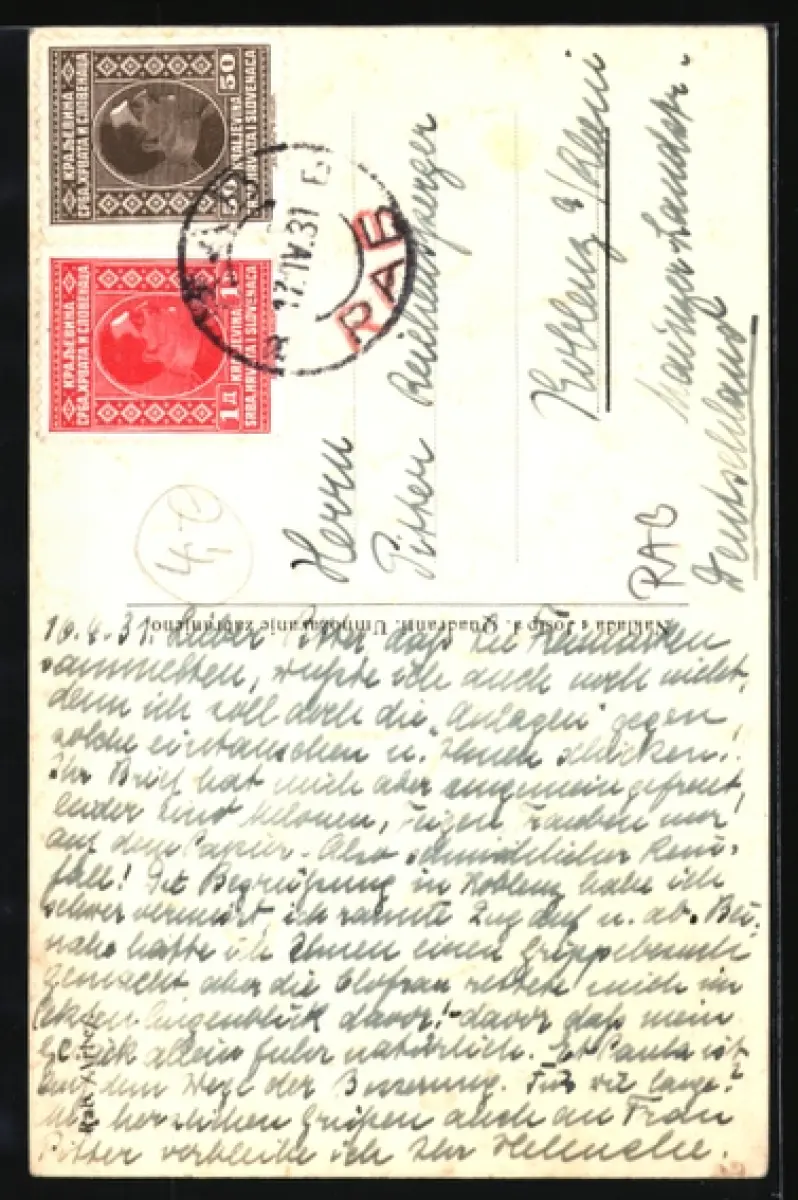 КРАЉЕВИНА
СРБА, ХРВАТА И СЛОВЕНАЦА
50 50
KRALJEVINA
SRBA, HRVATA I SLOVENACA
КРАЉЕВИНА
СРБА, ХРВАТА И СЛОВЕНАЦА
1 Д 1
KRALJEVINA
SRBA, HRVATA I SLOVENACA
17.IV.31
RAB
РАБ
Herrn
Pitter
Koblenz a/Rhein
Mainzer Landstr.
Deutschland
RAB
4,-
Naklada: Josip J. Quadranti. Umnožavanje zabranjeno
16.4.31. Lieber Pitter, daß Sie
sammelten, wußte ich auch noch nicht,
denn ich soll doch die "Anlagen" gegen
solche eintauschen u. Ihnen schicken.
Ihr Brief hat mich aber ungemein gefreut,
leider sind Melonen, Feigen, Trauben nur
auf dem Papier. Also
fall! Die Begrüßung in Koblenz habe ich
schwer vermisst, ich rannte Zug auf u. ab. Bei-
nahe hätte ich Ihnen einen Grippebesuch
gemacht aber die rettete mich im
letzten Augenblick davor! davor daß mein
allein fuhr natürlich. Paula ist
auf dem Wege der Besserung. Für wie lange?
Mit herzlichen Grüßen auch an Frau
Pitter verbleibe ich Ihr Helenche.